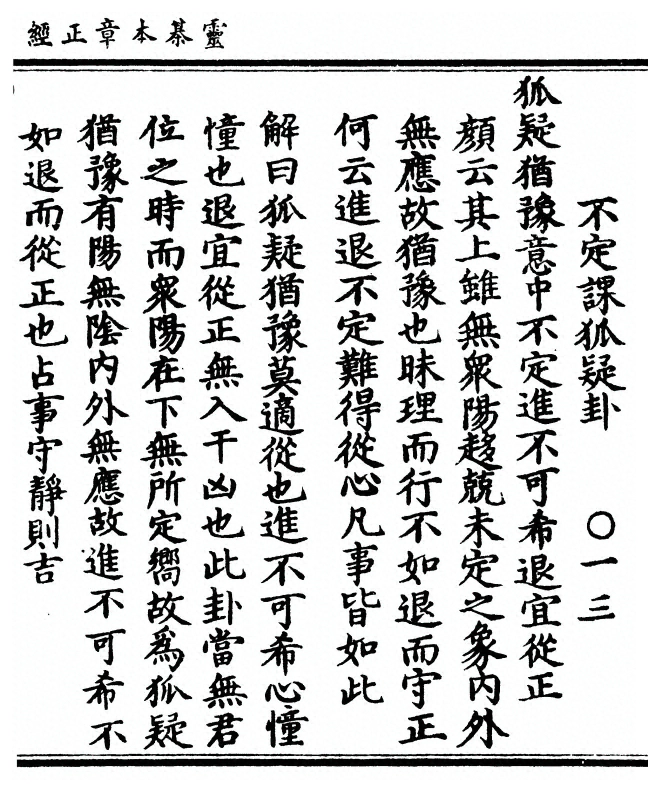 靈棊本章正經
不定課狐疑卦　〇一三
狐疑猶豫意中不定進不可希退宜從正
顏云其上雖無眾陽趍兢未定之象內外
無應故猶豫也昧理而行不如退而守正
何云進退不定難得從心凡事皆如此
解曰狐疑猶豫莫適從也進不可希心憧
憧也退宜從正無入于凶也此卦當無君
位之時而眾陽在下無所定嚮故爲狐疑
猶豫有陽無陰內外無應故進不可希不
如退而從正也占事守靜則吉